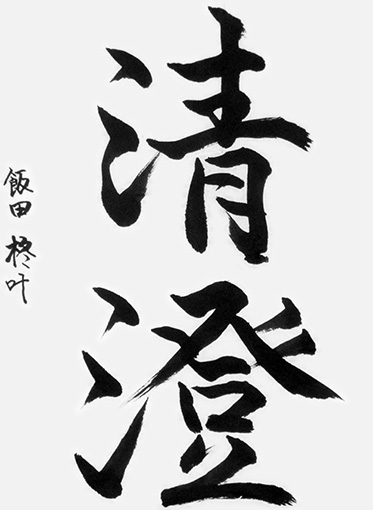 清澄
飯田柊叶